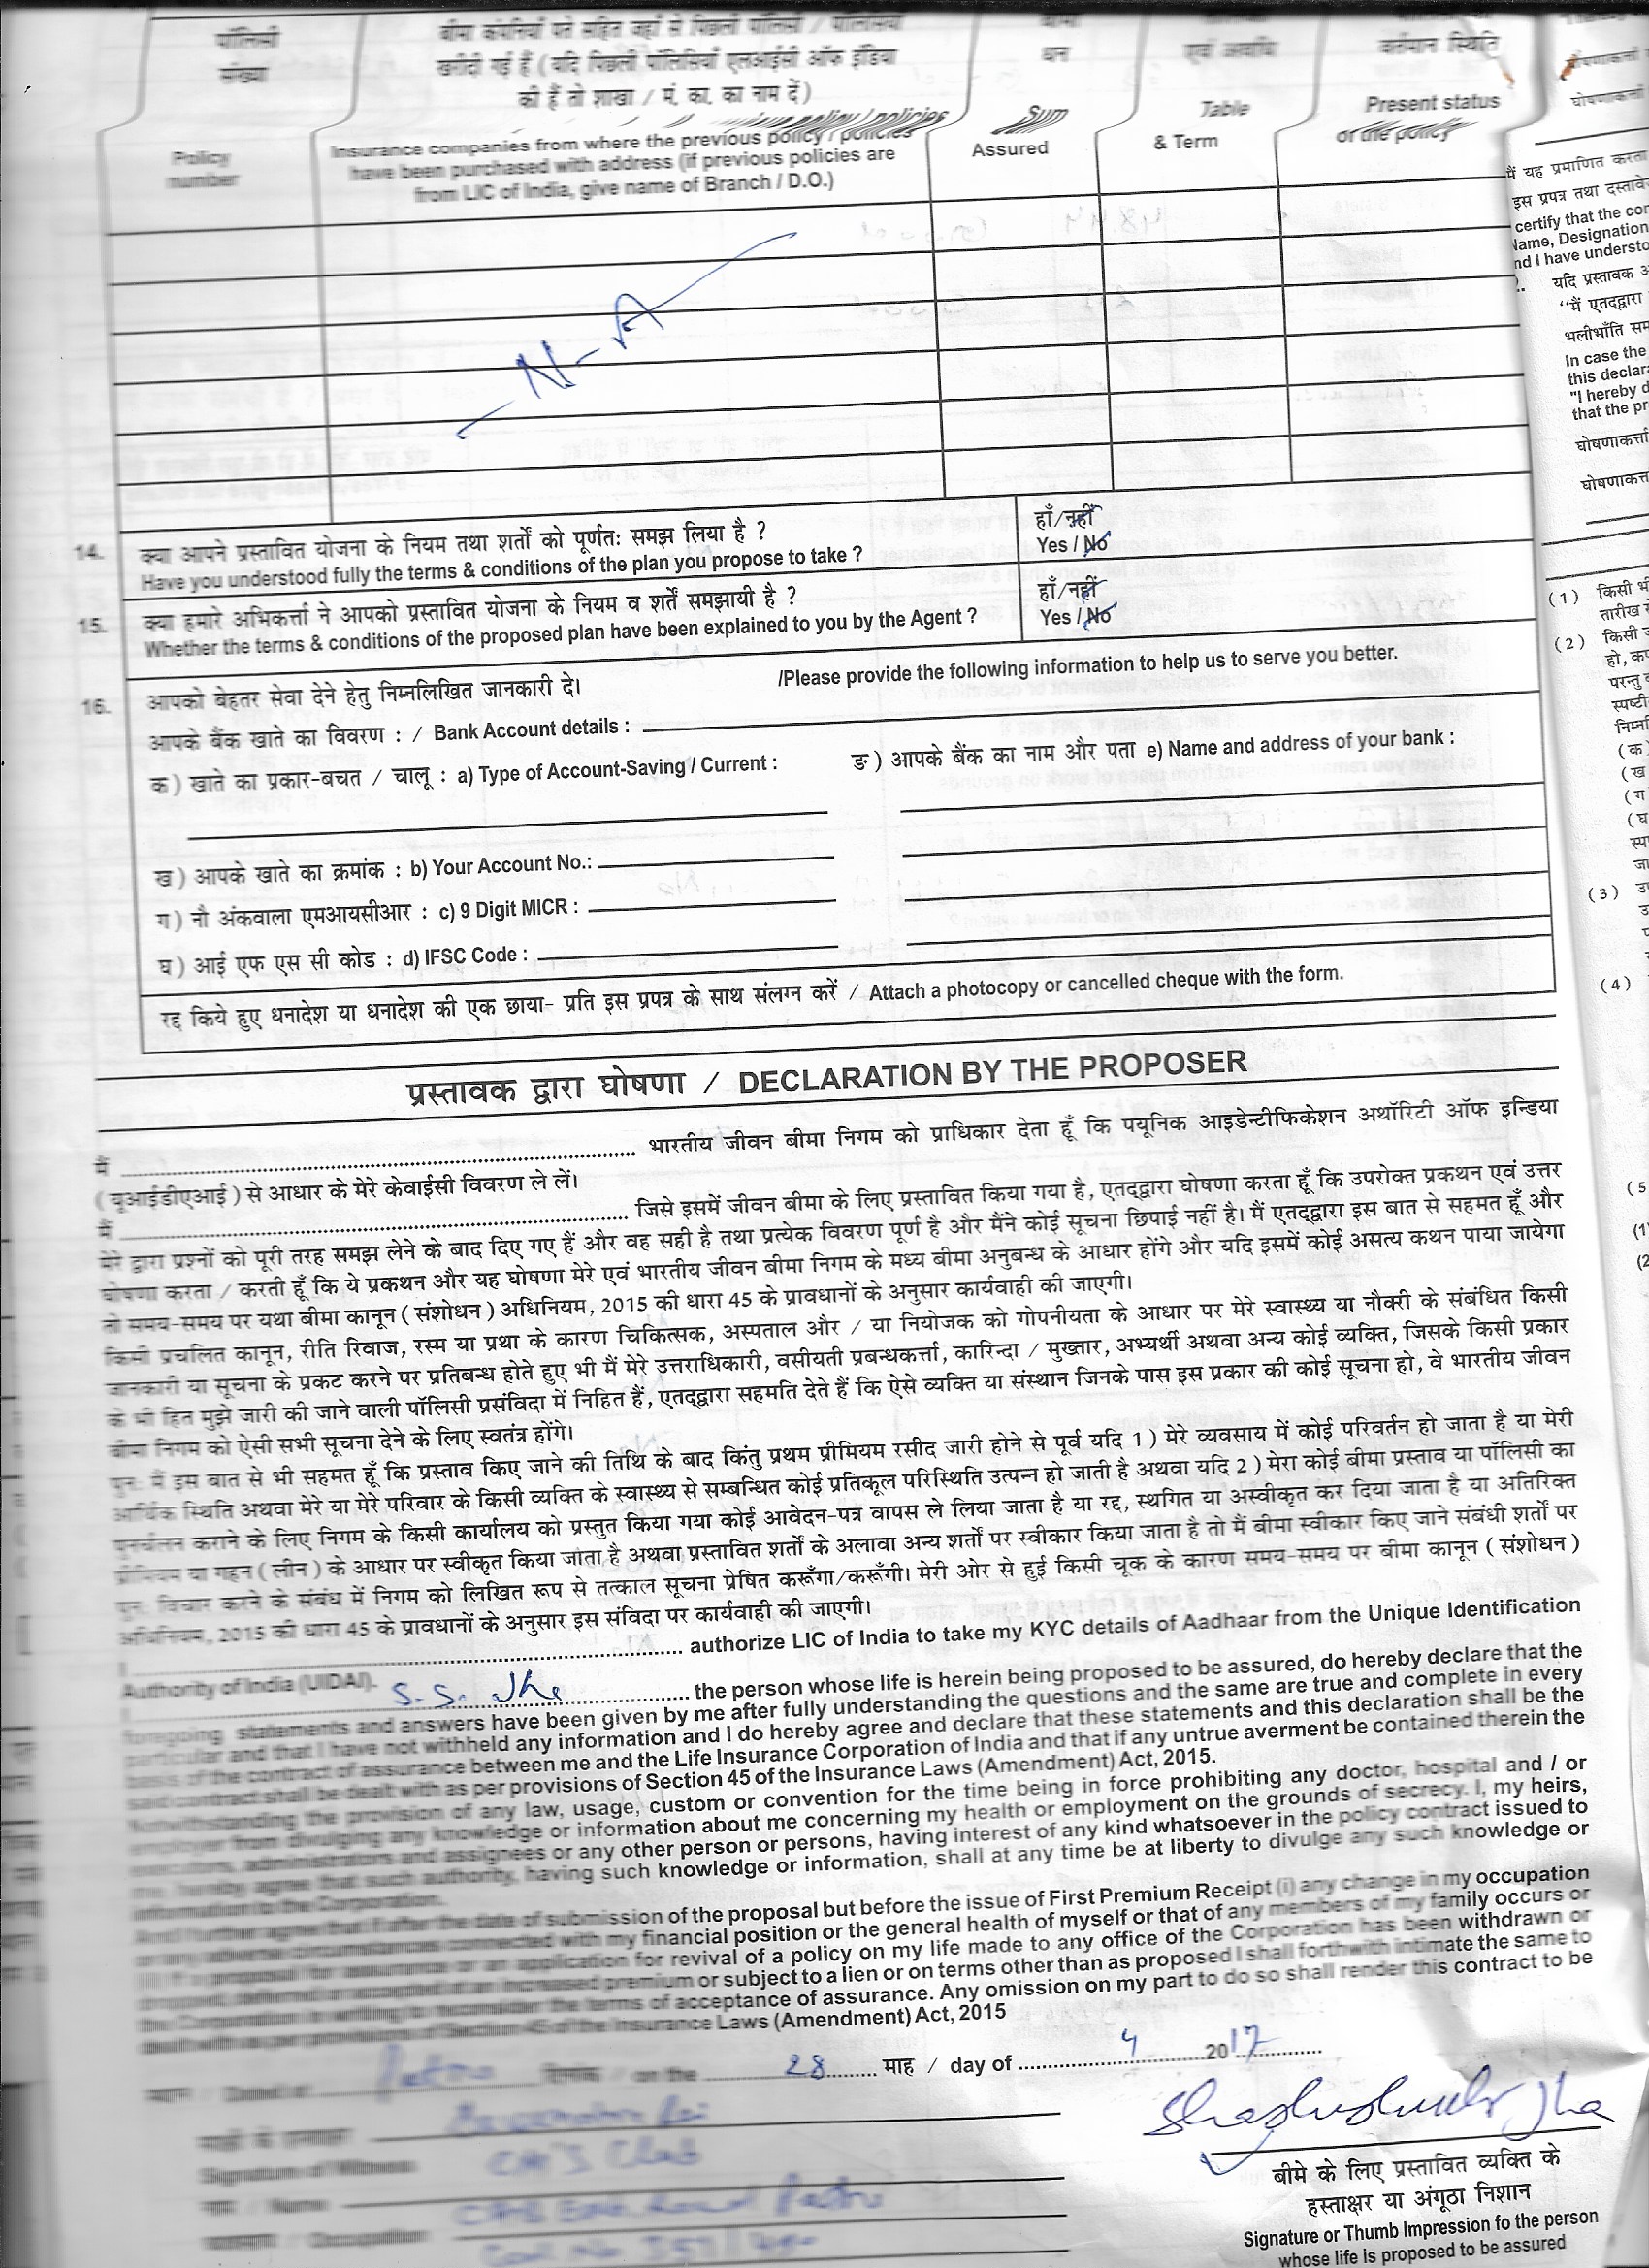 पॉलिसी
संख्या
बीमा कंपनियाँ पते सहित जहाँ से पिछली पॉलिसी / पॉलिसियाँ
खरीदी गई हैं (यदि पिछली पॉलिसियाँ एलआईसी ऑफ इंडिया
की हैं तो शाखा / मं. का. का नाम दें)
धन
एवं अवधि
वर्तमान स्थिति
Policy
number
Insurance companies from where the previous policy / policies
have been purchased with address (if previous policies are
from LIC of India, give name of Branch / D.O.)
Sum
Assured
Table
& Term
Present status
of the policy
N-A
14. क्या आपने प्रस्तावित योजना के नियम तथा शर्तों को पूर्णतः समझ लिया है ? हाँ/नहीं
Have you understood fully the terms & conditions of the plan you propose to take ? Yes / No
15. क्या हमारे अभिकर्त्ता ने आपको प्रस्तावित योजना के नियम व शर्तें समझायी है ? हाँ/नहीं
Whether the terms & conditions of the proposed plan have been explained to you by the Agent ? Yes / No
16. आपको बेहतर सेवा देने हेतु निम्नलिखित जानकारी दे। /Please provide the following information to help us to serve you better.
आपके बैंक खाते का विवरण : / Bank Account details :
क) खाते का प्रकार-बचत / चालू : a) Type of Account-Saving / Current : ङ) आपके बैंक का नाम और पता e) Name and address of your bank :
ख) आपके खाते का क्रमांक : b) Your Account No.:
ग) नौ अंकवाला एमआयसीआर : c) 9 Digit MICR :
घ) आई एफ एस सी कोड : d) IFSC Code :
रद्द किये हुए धनादेश या धनादेश की एक छाया- प्रति इस प्रपत्र के साथ संलग्न करें / Attach a photocopy or cancelled cheque with the form.
प्रस्तावक द्वारा घोषणा / DECLARATION BY THE PROPOSER
मैं ........ भारतीय जीवन बीमा निगम को प्राधिकार देता हूँ कि पयूनिक आइडेन्टीफिकेशन अथॉरिटी ऑफ इन्डिया
(यूआईडीएआई) से आधार के मेरे केवाईसी विवरण ले लें।
मैं ........ जिसे इसमें जीवन बीमा के लिए प्रस्तावित किया गया है, एतद्द्वारा घोषणा करता हूँ कि उपरोक्त प्रकथन एवं उत्तर
मेरे द्वारा प्रश्नों को पूरी तरह समझ लेने के बाद दिए गए हैं और वह सही है तथा प्रत्येक विवरण पूर्ण है और मैंने कोई सूचना छिपाई नहीं है। मैं एतद्द्वारा इस बात से सहमत हूँ और
घोषणा करता / करती हूँ कि ये प्रकथन और यह घोषणा मेरे एवं भारतीय जीवन बीमा निगम के मध्य बीमा अनुबन्ध के आधार होंगे और यदि इसमें कोई असत्य कथन पाया जायेगा
तो समय-समय पर यथा बीमा कानून (संशोधन) अधिनियम, 2015 की धारा 45 के प्रावधानों के अनुसार कार्यवाही की जाएगी।
किसी प्रचलित कानून, रीति रिवाज, रस्म या प्रथा के कारण चिकित्सक, अस्पताल और / या नियोजक को गोपनीयता के आधार पर मेरे स्वास्थ्य या नौकरी के संबंधित किसी
जानकारी या सूचना के प्रकट करने पर प्रतिबन्ध होते हुए भी मैं मेरे उत्तराधिकारी, वसीयती प्रबन्धकर्त्ता, कारिन्दा / मुख्तार, अभ्यर्थी अथवा अन्य कोई व्यक्ति, जिसके किसी प्रकार
के भी हित मुझे जारी की जाने वाली पॉलिसी प्रसंविदा में निहित हैं, एतद्द्वारा सहमति देते हैं कि ऐसे व्यक्ति या संस्थान जिनके पास इस प्रकार की कोई सूचना हो, वे भारतीय जीवन
बीमा निगम को ऐसी सभी सूचना देने के लिए स्वतंत्र होंगे।
पुनः मैं इस बात से भी सहमत हूँ कि प्रस्ताव किए जाने की तिथि के बाद किंतु प्रथम प्रीमियम रसीद जारी होने से पूर्व यदि 1) मेरे व्यवसाय में कोई परिवर्तन हो जाता है या मेरी
आर्थिक स्थिति अथवा मेरे या मेरे परिवार के किसी व्यक्ति के स्वास्थ्य से सम्बन्धित कोई प्रतिकूल परिस्थिति उत्पन्न हो जाती है अथवा यदि 2) मेरा कोई बीमा प्रस्ताव या पॉलिसी का
पुनर्चलन कराने के लिए निगम के किसी कार्यालय को प्रस्तुत किया गया कोई आवेदन-पत्र वापस ले लिया जाता है या रद्द, स्थगित या अस्वीकृत कर दिया जाता है या अतिरिक्त
प्रीमियम या गहन (लीन) के आधार पर स्वीकृत किया जाता है अथवा प्रस्तावित शर्तों के अलावा अन्य शर्तों पर स्वीकार किया जाता है तो मैं बीमा स्वीकार किए जाने संबंधी शर्तों पर
पुनः विचार करने के संबंध में निगम को लिखित रूप से तत्काल सूचना प्रेषित करूँगा/करूँगी। मेरी ओर से हुई किसी चूक के कारण समय-समय पर बीमा कानून (संशोधन)
अधिनियम, 2015 की धारा 45 के प्रावधानों के अनुसार इस संविदा पर कार्यवाही की जाएगी।
I ........ authorize LIC of India to take my KYC details of Aadhaar from the Unique Identification
Authority of India (UIDAI).
I S.S. Jha ........ the person whose life is herein being proposed to be assured, do hereby declare that the
foregoing statements and answers have been given by me after fully understanding the questions and the same are true and complete in every
particular and that I have not withheld any information and I do hereby agree and declare that these statements and this declaration shall be the
basis of the contract of assurance between me and the Life Insurance Corporation of India and that if any untrue averment be contained therein the
said contract shall be dealt with as per provisions of Section 45 of the Insurance Laws (Amendment) Act, 2015.
Notwithstanding the provision of any law, usage, custom or convention for the time being in force prohibiting any doctor, hospital and / or
employer from divulging any knowledge or information about me concerning my health or employment on the grounds of secrecy. I, my heirs,
administrators and assignees or any other person or persons, having interest of any kind whatsoever in the policy contract issued to
me, hereby agree that such authority, having such knowledge or information, shall at any time be at liberty to divulge any such knowledge or
information to the Corporation.
And I further agree that if after the date of submission of the proposal but before the issue of First Premium Receipt (i) any change in my occupation
or any adverse circumstances connected with my financial position or the general health of myself or that of any members of my family occurs or
(ii) if a proposal for assurance or an application for revival of a policy on my life made to any office of the Corporation has been withdrawn or
dropped, deferred or accepted at an increased premium or subject to a lien or on terms other than as proposed I shall forthwith intimate the same to
the Corporation in writing to reconsider the terms of acceptance of assurance. Any omission on my part to do so shall render this contract to be
dealt with as per provisions of Section 45 of the Insurance Laws (Amendment) Act, 2015
Dated at Patna दिनांक / on the 28 माह / day of 4 2017
Signature of Witness
नाम / Name
Occupation
Shashishekhr Jha
बीमे के लिए प्रस्तावित व्यक्ति के
हस्ताक्षर या अंगूठा निशान
Signature or Thumb Impression fo the person
whose life is proposed to be assured
घोषणाकर्त्ता
मैं यह प्रमाणित करता
इस प्रपत्र तथा दस्तावे
certify that the cor
Name, Designation
nd I have understo
यदि प्रस्तावक
"मैं एतद्द्वारा
भलीभाँति सम
In case the
this declar
"I hereby d
that the pr
घोषणाकर्त्ता
घोषणाकर्त्त
(1) किसी भी
तारीख से
(2) किसी
हो, कप
परन्तु
स्पष्टी
निम्नलि
(क
(ख
(ग
(घ
(3)
(4)
(5
(1
(2